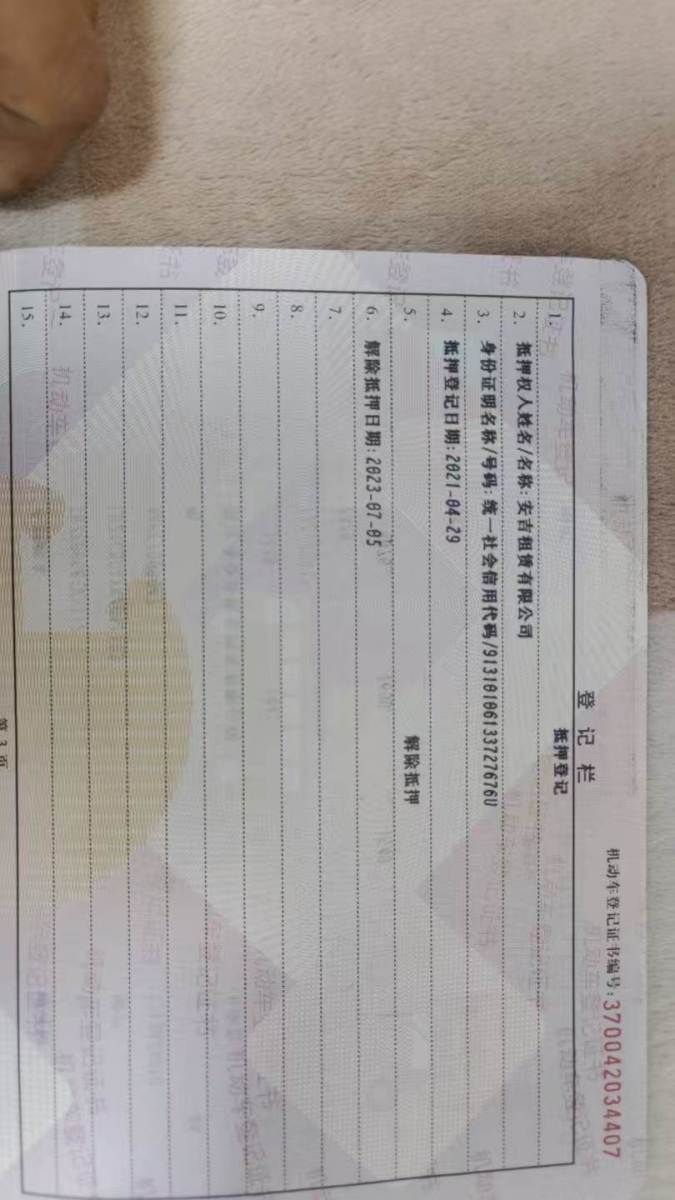 机动车登记证书编号:370042034407
登记栏
1. 抵押登记
2. 抵押权人姓名/名称:安吉租赁有限公司
3. 身份证明名称/号码:统一社会信用代码/91310106133727676U
4. 抵押登记日期:2021-04-29
5. 解除抵押
6. 解除抵押日期:2023-07-05
7.
8.
9.
10.
11.
12.
13.
14.
15.
第 3 页